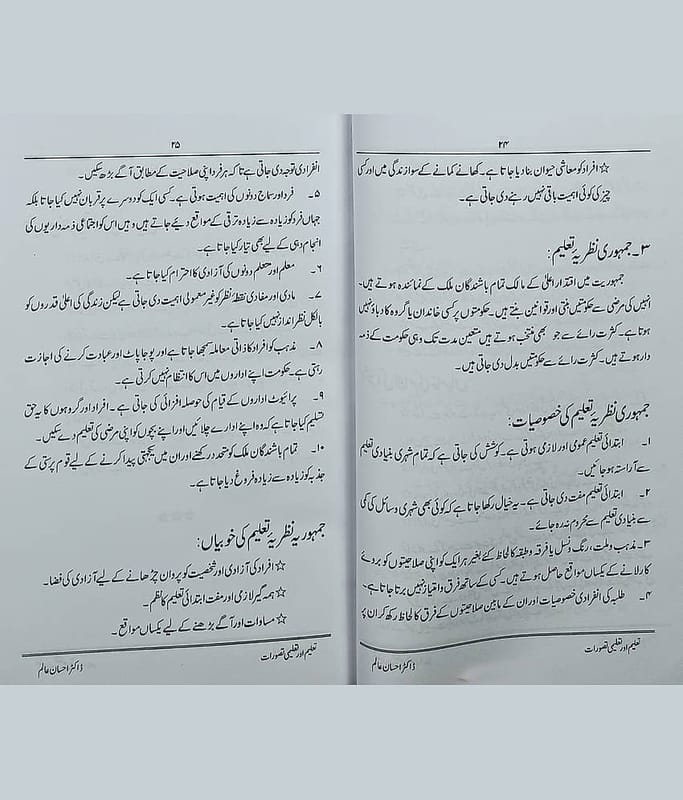 ۲۴
☆ افراد کو معاشی حیوان بنا دیا جاتا ہے۔ کھانے کمانے کے سوا زندگی میں اور کسی
چیز کی کوئی اہمیت باقی نہیں رہنے دی جاتی ہے۔
۳۔ جمہوری نظریۂ تعلیم:
جمہوریت میں اقتدار اعلیٰ کے مالک تمام باشندگان ملک کے نمائندہ ہوتے ہیں۔
انہیں کی مرضی سے حکومتیں بنتی اور قوانین بنتے ہیں۔ حکومتوں پر کسی خاندان یا گروہ کا دباؤ نہیں
ہوتا ہے۔ کثرت رائے سے جو بھی منتخب ہوتے ہیں متعین مدت تک وہی حکومت کے ذمہ
دار ہوتے ہیں۔ کثرت رائے سے حکومتیں بدل دی جاتی ہیں۔
جمہوری نظریۂ تعلیم کی خصوصیات:
۱۔ ابتدائی تعلیم عمومی اور لازمی ہوتی ہے۔ کوشش کی جاتی ہے کہ تمام شہری بنیادی تعلیم
سے آراستہ ہو جائیں۔
۲۔ ابتدائی تعلیم مفت دی جاتی ہے۔ یہ خیال رکھا جاتا ہے کہ کوئی بھی شہری وسائل کی کمی
سے بنیادی تعلیم سے محروم نہ رہ جائے۔
۳۔ مذہب و ملت، رنگ و نسل یا فرقہ و طبقہ کا لحاظ کئے بغیر ہر ایک کو اپنی صلاحیتوں کو بروئے
کار لانے کے یکساں مواقع حاصل ہوتے ہیں۔ کسی کے ساتھ فرق و امتیاز نہیں برتا جاتا ہے۔
۴۔ طلبہ کی انفرادی خصوصیات اور ان کے مابین صلاحیتوں کے فرق کا لحاظ رکھ کر ان پر
تعلیم اور تعلیمی تصورات
ڈاکٹر احسان عالم
۲۵
انفرادی توجہ دی جاتی ہے تاکہ ہر فرد اپنی صلاحیت کے مطابق آگے بڑھ سکیں۔
۵۔ فرد اور سماج دونوں کی اہمیت ہوتی ہے۔ کسی ایک کو دوسرے پر قربان نہیں کیا جاتا بلکہ
جہاں فرد کو زیادہ سے زیادہ ترقی کے مواقع دیئے جاتے ہیں وہیں اس کو اجتماعی ذمہ داریوں کی
انجام دہی کے لیے بھی تیار کیا جاتا ہے۔
۶۔ معلم اور متعلم دونوں کی آزادی کا احترام کیا جاتا ہے۔
۷۔ مادی اور مفادی نقطۂ نظر کو غیر معمولی اہمیت دی جاتی ہے لیکن زندگی کی اعلیٰ قدروں کو
بالکل نظر انداز نہیں کیا جاتا ہے۔
۸۔ مذہب کو افراد کا ذاتی معاملہ سمجھا جاتا ہے اور پوجا پاٹ اور عبادت کرنے کی اجازت
رہتی ہے۔ حکومت اپنے اداروں میں اس کا انتظام نہیں کرتی ہے۔
۹۔ پرائیوٹ اداروں کے قیام کی حوصلہ افزائی کی جاتی ہے۔ افراد اور گروہوں کا یہ حق
تسلیم کیا جاتا ہے کہ وہ اپنے ادارے چلائیں اور اپنے بچوں کو اپنی مرضی کی تعلیم دے سکیں۔
۱۰۔ تمام باشندگان ملک کو متحد رکھنے اور ان میں یکجہتی پیدا کرنے کے لیے قوم پرستی کے
جذبہ کو زیادہ سے زیادہ فروغ دیا جاتا ہے۔
جمہوریہ نظریۂ تعلیم کی خوبیاں:
☆ افراد کی آزادی اور شخصیت کو پروان چڑھانے کے لیے آزادی کی فضا۔
☆ ہمہ گیر لازمی اور مفت ابتدائی تعلیم کا نظم۔
☆ مساوات اور آگے بڑھنے کے لیے یکساں مواقع۔
تعلیم اور تعلیمی تصورات
ڈاکٹر احسان عالم